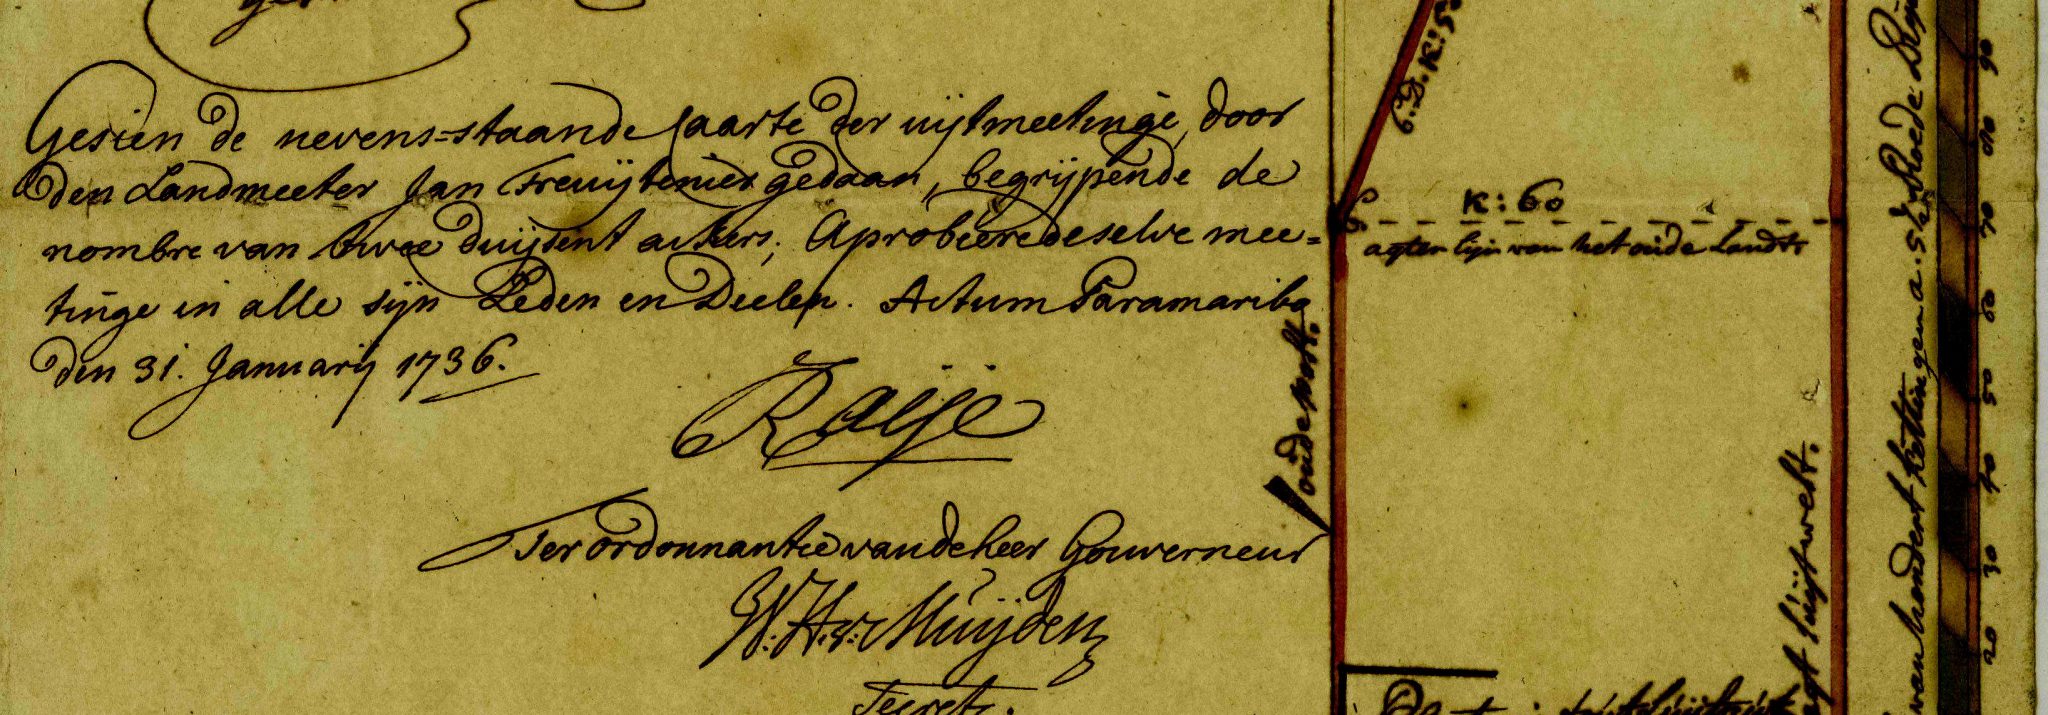 Gesien de nevens=staande Caarte der uijtmeetinge, door
den Landmeeter Jan Freuijtenier gedaan, begrijpende de
nombre van twee duijsent ackers, Aprobeere deselve mee=
tinge in alle sijn Leden en Deelen. Actum Paramaribo
den 31. Januarij 1736.
Raije
Ter ordonnantie van de heer Gouverneur
W: H: v: Muijden
Secrets.
6. D. K: 50
K: 60
agter lijn van het oude Landt
oude
suijtwest.
van hondert kettingen a. 5½ Roede
90
80
70
60
50
40
30
20